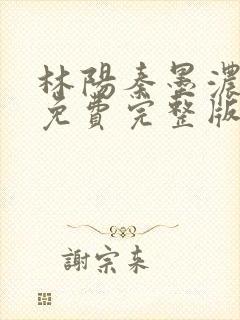 林陽秦墨濃
免費完整版
謝宗來